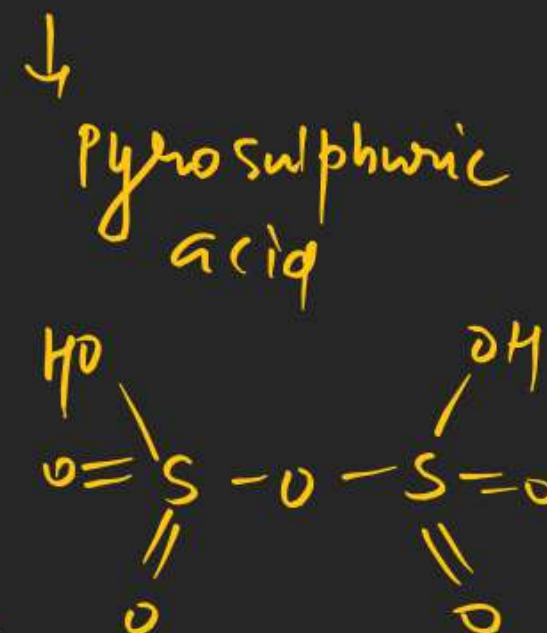 Pyrosulphuric
acid
HO OH
O=S-O-S=O
O O